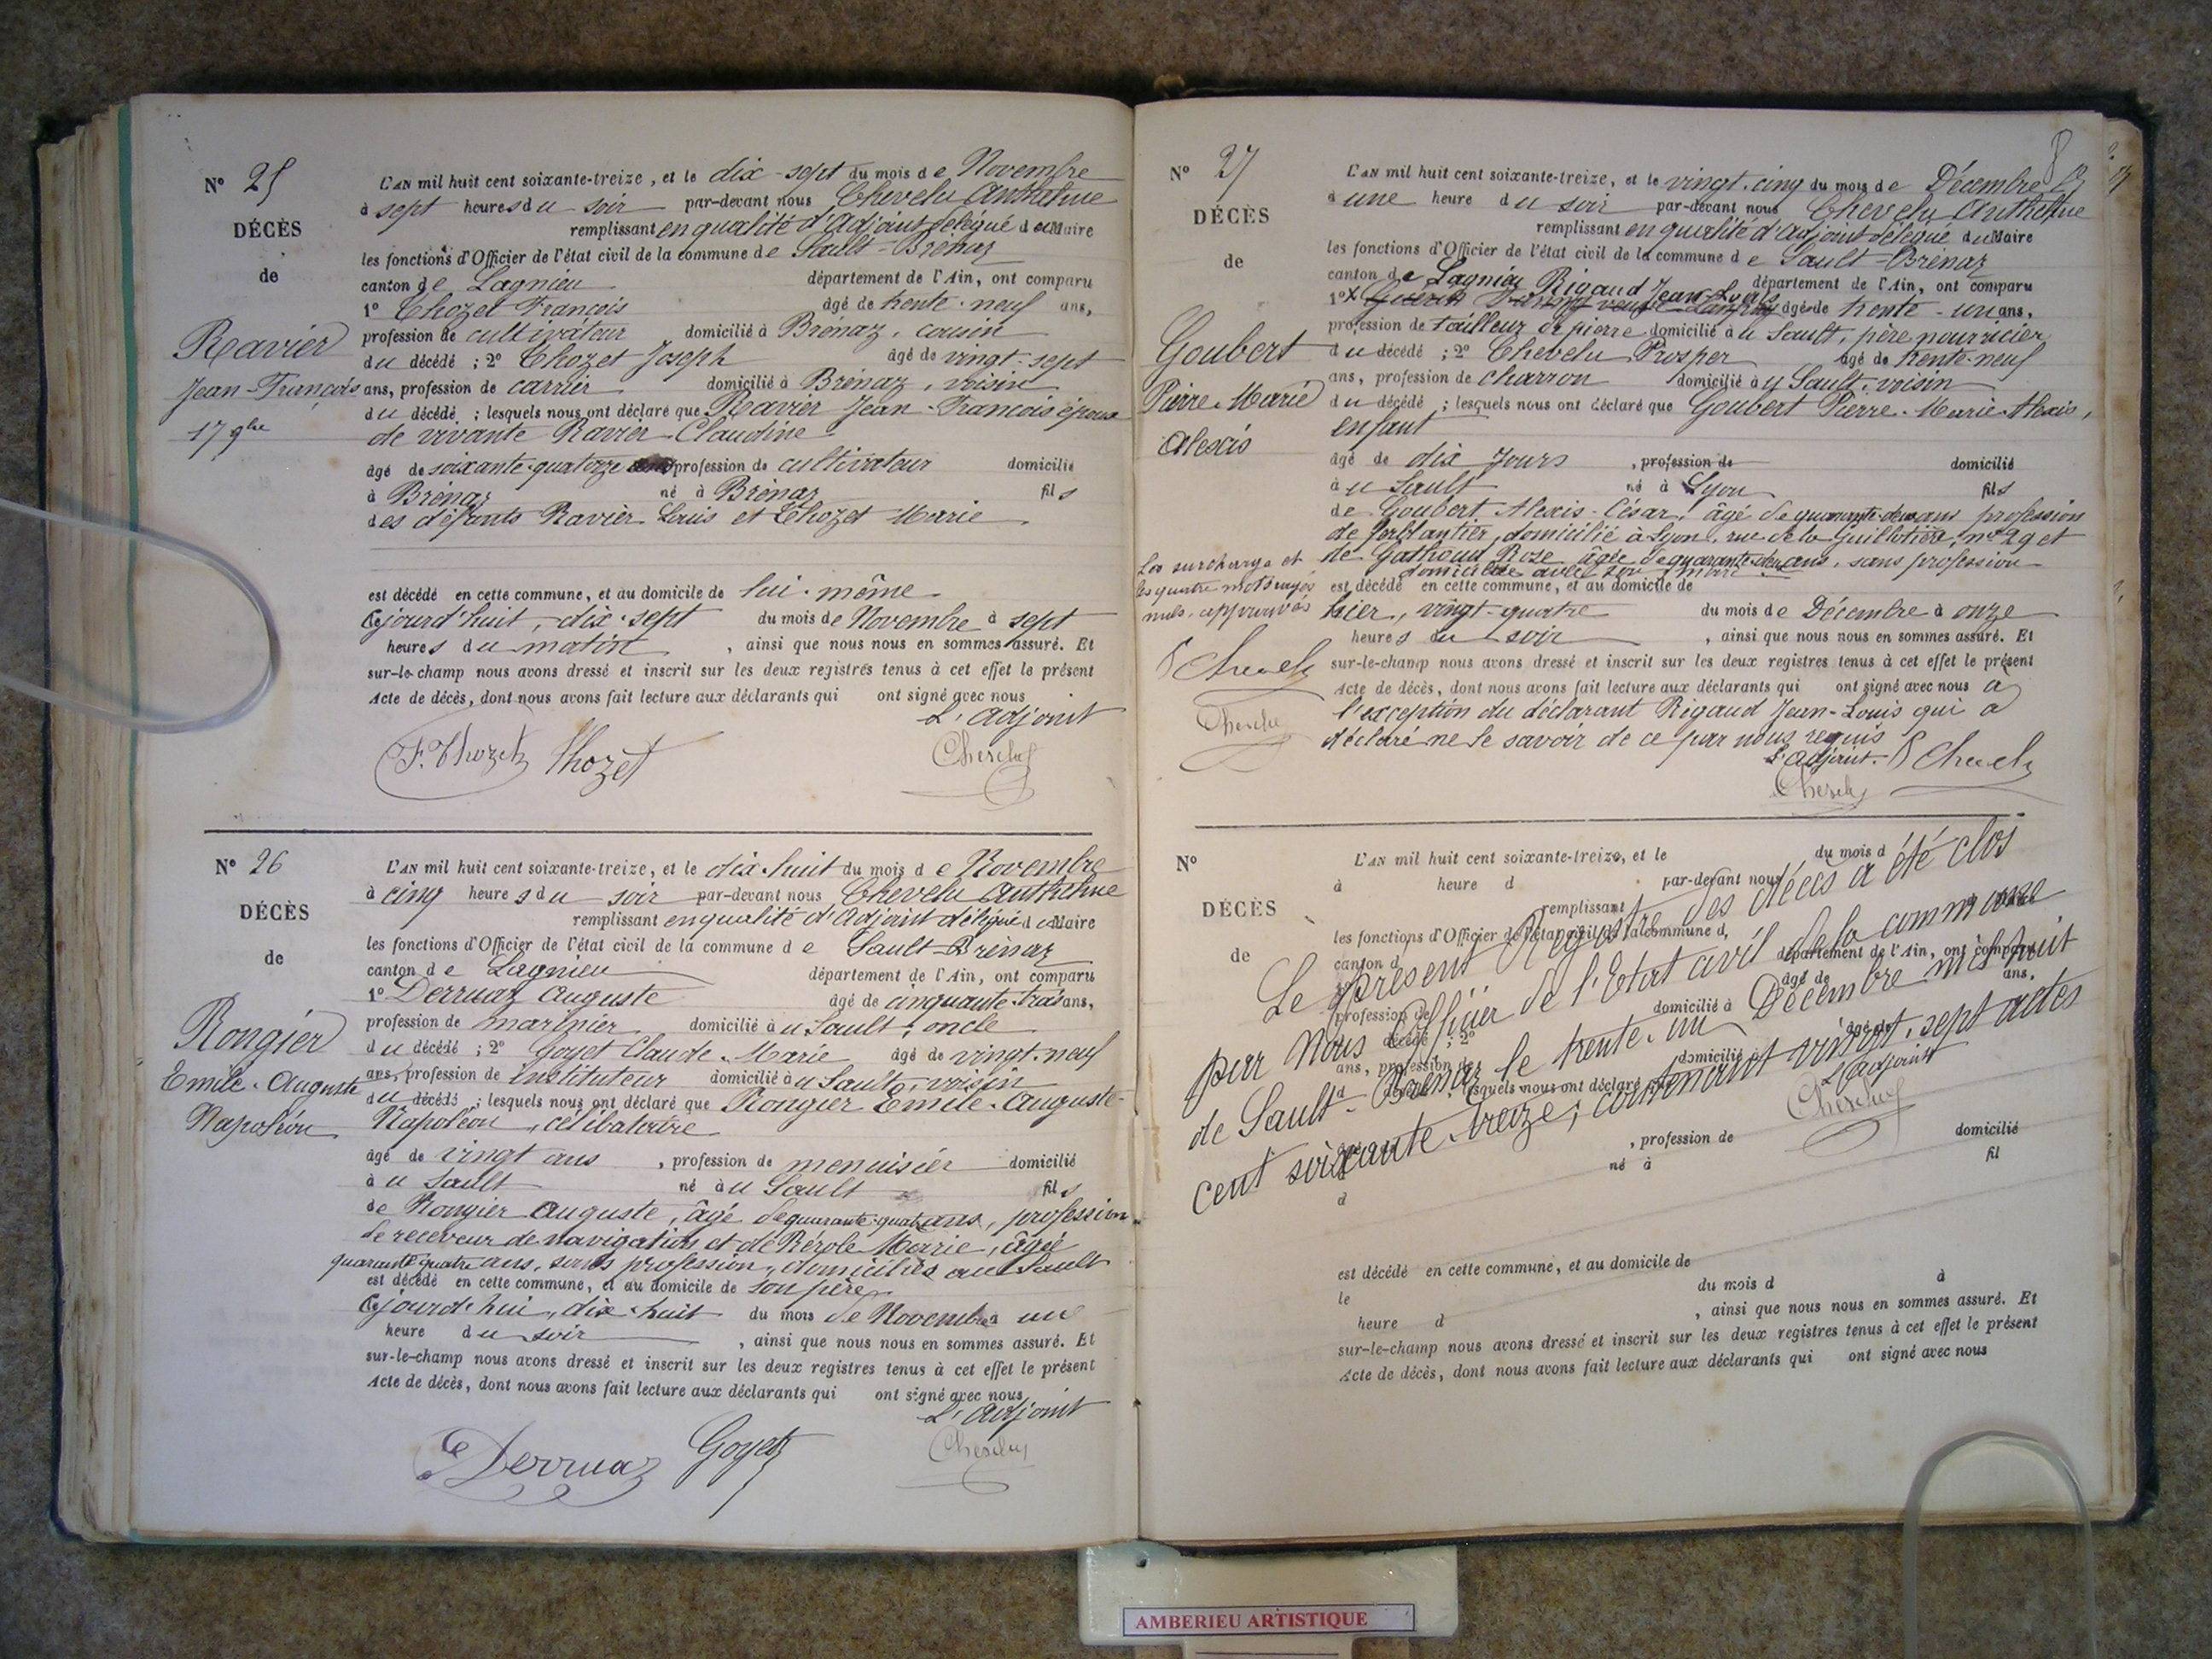 N° 25
DÉCÈS
de
Ravier
Jean-François
17 9bre
L'AN mil huit cent soixante-treize, et le dix-sept du mois de Novembre
à sept heures du soir par-devant nous Chevelu Anthelme
remplissant en qualité d'Adjoint délégué du Maire
les fonctions d'Officier de l'état civil de la commune de Sault-Brénaz
canton de Lagnieu département de l'Ain, ont comparu
1° Thozet François âgé de trente-neuf ans,
profession de cultivateur domicilié à Brénaz, cousin
du décédé ; 2° Thozet Joseph âgé de vingt-sept
ans, profession de carrier domicilié à Brénaz, voisin
du décédé ; lesquels nous ont déclaré que Ravier Jean-François époux
de vivante Ravier Claudine
âgé de soixante-quatorze profession de cultivateur domicilié
à Brénaz né à Brénaz fils
des défunts Ravier Louis et Thozet Marie
est décédé en cette commune, et au domicile de lui-même
Cejourd'huit, dix-sept du mois de Novembre à sept
heures du matin, ainsi que nous nous en sommes assuré. Et
sur-le-champ nous avons dressé et inscrit sur les deux registres tenus à cet effet le présent
Acte de décès, dont nous avons fait lecture aux déclarants qui ont signé avec nous
L'Adjoint
F. Thozet Thozet Chevelu
N° 26
DÉCÈS
de
Rongier
Emile-Auguste
Napoléon
L'AN mil huit cent soixante-treize, et le dix-huit du mois de Novembre
à cinq heures du soir par-devant nous Chevelu Anthelme
remplissant en qualité d'Adjoint délégué du Maire
les fonctions d'Officier de l'état civil de la commune de Sault-Brénaz
canton de Lagnieu département de l'Ain, ont comparu
1° Derruaz Auguste âgé de cinquante-trois ans,
profession de marinier domicilié à u Sault, oncle
du décédé ; 2° Goyet Claude-Marie âgé de vingt-neuf
ans, profession de instituteur domicilié à u Sault, voisin
du décédé ; lesquels nous ont déclaré que Rongier Emile-Auguste-
Napoléon, célibataire
âgé de vingt ans, profession de menuisier domicilié
à u Sault né à u Sault fils
de Rongier Auguste, âgé de quarante-quatre ans, profession
de receveur de navigation et de Rérole Marie, âgée
quarante quatre ans, sans profession, domiciliés au Sault
est décédé en cette commune, et au domicile de son père
Cejourd'hui, dix-huit du mois de Novembre à une
heure du soir, ainsi que nous nous en sommes assuré. Et
sur-le-champ nous avons dressé et inscrit sur les deux registres tenus à cet effet le présent
Acte de décès, dont nous avons fait lecture aux déclarants qui ont signé avec nous
L'Adjoint
Derruaz Goyet Chevelu
N° 27
DÉCÈS
de
Goubert
Pierre-Marie
Alexis
La surcharge et
les quatre mots rayés
nuls, approuvés
P Chevelu
Chevelu
L'AN mil huit cent soixante-treize, et le vingt-cinq du mois de Décembre
à une heure du soir par-devant nous Chevelu Anthelme
remplissant en qualité d'Adjoint délégué du Maire
les fonctions d'Officier de l'état civil de la commune de Sault-Brénaz
canton de Lagnieu département de l'Ain, ont comparu
1° Rigaud Jean-Louis âgé de trente-un ans,
profession de tailleur de pierre domicilié à u Sault, père nourricier
du décédé ; 2° Chevelu Prosper âgé de trente-neuf
ans, profession de charron domicilié à u Sault, voisin
du décédé ; lesquels nous ont déclaré que Goubert Pierre-Marie-Alexis,
enfant
âgé de dix jours, profession de domicilié
à u Sault né à Lyon fils
de Goubert Alexis-César, âgé de quarante-deux ans profession
de ferblantier, domicilié à Lyon, rue de la Guillotière, n° 29 et
de Gathoud Rose âgée de quarante-deux ans, sans profession
domiciliée avec son mari
est décédé en cette commune, et au domicile de
hier, vingt-quatre du mois de Décembre à onze
heures du soir, ainsi que nous nous en sommes assuré. Et
sur-le-champ nous avons dressé et inscrit sur les deux registres tenus à cet effet le présent
Acte de décès, dont nous avons fait lecture aux déclarants qui ont signé avec nous à
l'exception du déclarant Rigaud Jean-Louis qui a
déclaré ne le savoir de ce par nous requis
L'Adjoint P Chevelu
Chevelu
N°
DÉCÈS
de
L'AN mil huit cent soixante-treize, et le du mois d
à heure d par-devant nous
remplissant
les fonctions d'Officier de l'état civil de la commune d
canton d département de l'Ain, ont comparu
1° âgé de ans,
profession de domicilié à
d décédé ; 2° âgé de
ans, profession de domicilié à
d décédé ; lesquels nous ont déclaré que
âgé de , profession de domicilié
à né à fil
d
Le présent Registre des décès a été clos
par Nous Officier de l'Etat civil de la commune
de Sault-Brénaz le trente-un Décembre mil huit
cent soixante-treize, contenant vingt-sept actes
L'Adjoint
Chevelu
est décédé en cette commune, et au domicile de
le du mois d à
heure d , ainsi que nous nous en sommes assuré. Et
sur-le-champ nous avons dressé et inscrit sur les deux registres tenus à cet effet le présent
Acte de décès, dont nous avons fait lecture aux déclarants qui ont signé avec nous
AMBERIEU ARTISTIQUE